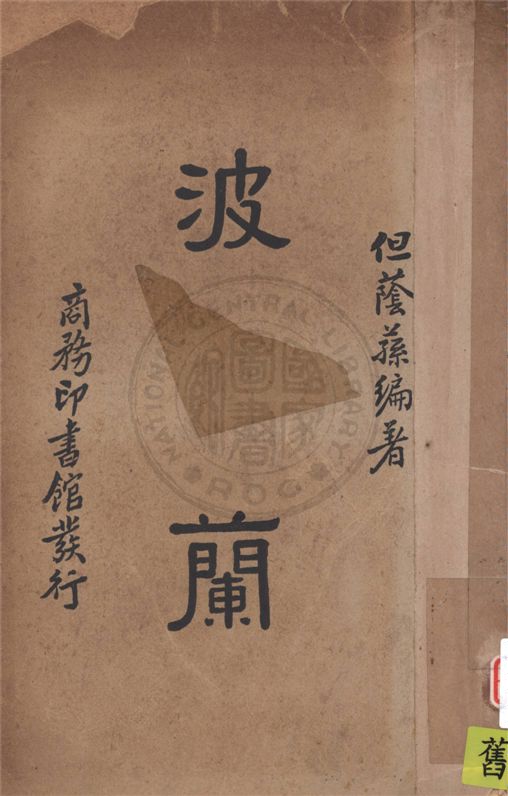 但蔭蓀編著
波蘭
商務印書館發行
NATIONAL CENTRAL LIBRARY
ROC
國家圖書館
舊